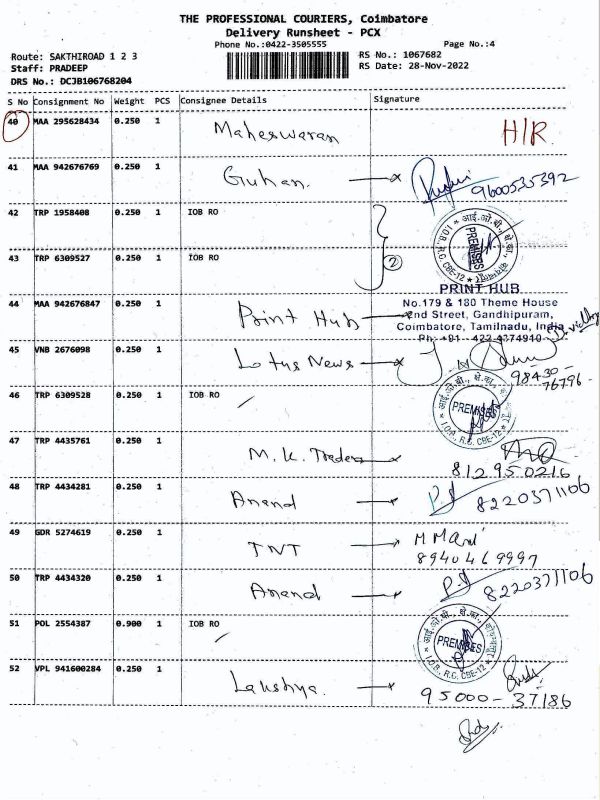 THE PROFESSIONAL COURIERS, Coimbatore
Delivery Runsheet - PCX
Phone No.:0422-3505555
Page No.:4
Route: SAKTHIROAD 1 2 3
RS No.: 1067682
Staff: PRADEEP
RS Date: 28-Nov-2022
DRS No.: DCJB106768204
S No Consignment No Weight PCS Consignee Details Signature
40 MAA 295628434 0.250 1 Maheswaran H/R
41 MAA 942676769 0.250 1 Guhan 9600535392
42 TRP 1958408 0.250 1 IOB RO
PREMISES
43 TRP 6309527 0.250 1 IOB RO 2
PRINT HUB
44 MAA 942676847 0.250 1 Print Hub No.179 & 180 Theme House
2nd Street, Gandhipuram,
Coimbatore, Tamilnadu, India
Ph +91 - 422 4374910
45 VNB 2676098 0.250 1 Lotus News
98430-
76796-
46 TRP 6309528 0.250 1 IOB RO PREMISES
I.O.B., R.C. CBE-12
47 TRP 4435761 0.250 1 M.K. Traders
812950216
48 TRP 4434281 0.250 1 Anand 8220371106
49 GDR 5274619 0.250 1 TNT M Mani
8940469997
50 TRP 4434320 0.250 1 Anand 8220371106
51 POL 2554387 0.900 1 IOB RO PREMISES
I.O.B., R.C. CBE-12
52 VPL 941600284 0.250 1 Lakshya
95000-37186